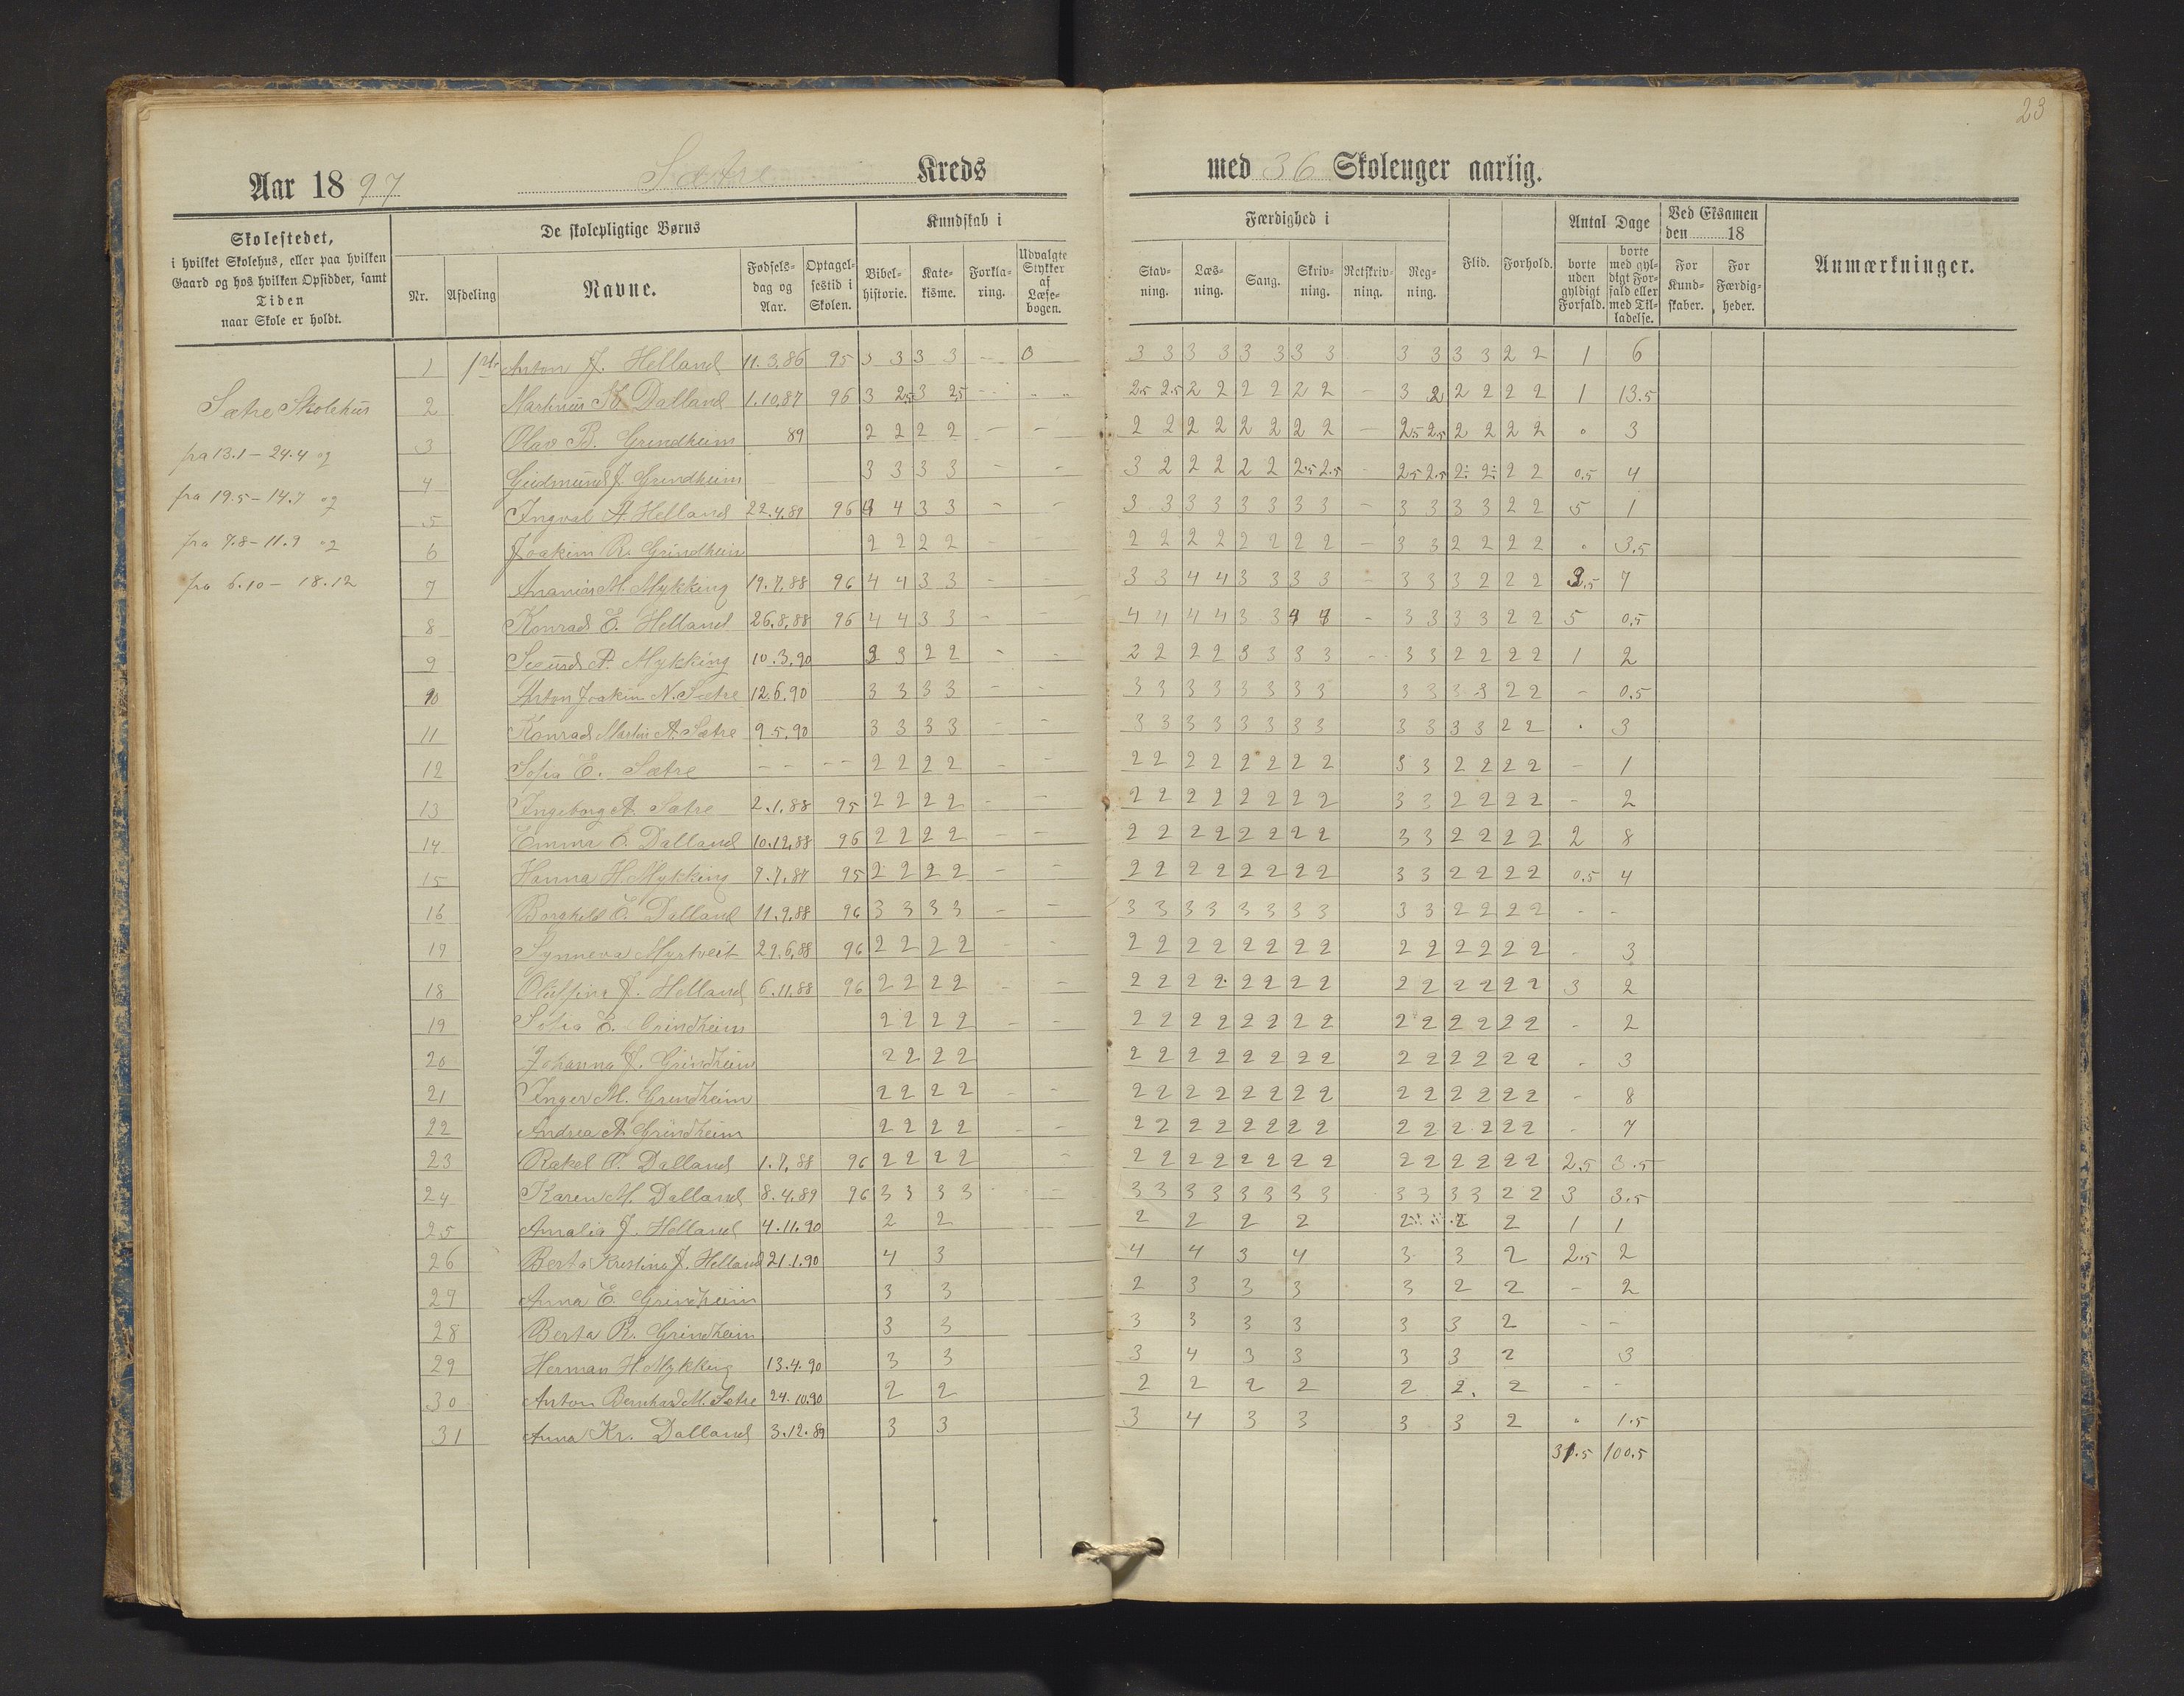 23
Aar 1897 Sætre Kreds med 36 Skoleuger aarlig.
Skolestedet, i hvilket Skolehus, eller paa hvilken Gaard og hos hvilken Opsidder, samt Tiden naar Skole er holdt.
De skolepligtige Børns
Nr. Afdeling Navne. Fødsels-dag og Aar. Optagel-sestid i Skolen.
Kundskab i
Bibel-historie. Kate-kisme. Forkla-ring. Udvalgte Stykker af Læse-bogen.
Færdighed i
Stav-ning. Læs-ning. Sang. Skriv-ning. Retskriv-ning. Reg-ning. Flid. Forhold.
Antal Dage
borte uden gyldigt Forfald. borte med gyl-digt For-fald eller med Til-ladelse.
Ved Eksamen den 18
For Kund-skaber. For Færdig-heder.
Anmærkninger.
Sætre Skolehus
fra 13.1 - 24.4 og
fra 19.5 - 14.7 og
fra 7.8 - 11.9 og
fra 6.10 - 18.12
1 Anton J. Helland 11.3.86 95 3 3 3 3 - 0 3 3 3 3 3 3 3 3 3 3 3 3 2 2 1 6
2 Martinus K. Dalland 1.10.87 96 3 2.5 3 2.5 - 2.5 2.5 2 2 2 2 2 2 - 3 2 2 2 2 2 1 13.5
3 Olav B. Grindheim 89 2 2 2 2 - - 2 2 2 2 2 2 2 2 - 2.5 2.5 2 2 2 2 0 3
4 Gudmund J. Grindheim 3 3 3 3 - - 3 2 2 2 2 2 2.5 2.5 - 2.5 2.5 2 2 2 2 0.5 4
5 Ingval A. Helland 22.4.89 96 4 4 3 3 - - 3 3 3 3 3 3 3 3 - 3 3 3 3 2 2 5 1
6 Joakim R. Grindheim 2 2 2 2 - - 2 2 2 2 2 2 2 2 - 3 3 2 2 2 2 0 3.5
7 Ananias M. Mykking 19.7.88 96 4 4 3 3 - 3 3 4 4 3 3 3 3 - 3 3 3 2 2 2 3.5 7
8 Konrad E. Helland 26.8.88 96 4 4 3 3 - - 4 4 4 4 3 3 4 4 - 3 3 3 3 2 2 5 0.5
9 Sjurd A. Mykking 10.3.90 3 3 2 2 - - 2 2 2 2 3 3 3 3 - 3 3 2 2 2 2 1 2
10 Anton Joakim N. Sætre 12.6.90 3 3 3 3 - - 3 3 3 3 3 3 3 3 3 3 3 3 2 2 - 0.5
11 Konrad Martin A. Sætre 9.5.90 3 3 3 3 - - 3 3 3 3 3 3 3 3 3 3 3 3 2 2 . 3
12 Sofia E. Sætre - - - - 2 2 2 2 - - 2 2 2 2 2 2 2 2 3 3 2 2 2 2 - 1
13 Ingeborg A. Sætre 2.1.88 95 2 2 2 2 - - 2 2 2 2 2 2 2 2 3 3 2 2 2 2 - 2
14 Emma O. Dalland 10.12.88 96 2 2 2 2 - - 2 2 2 2 2 2 2 2 3 3 2 2 2 2 2 8
15 Hanna H. Mykking 7.7.87 95 2 2 2 2 - - 2 2 2 2 2 2 2 2 3 3 2 2 2 2 0.5 4
16 Borghild E. Dalland 11.9.88 96 3 3 3 3 - - 3 3 3 3 3 3 3 3 3 3 2 2 2 2 - -
17 Synneva Myrtveit 29.6.88 96 2 2 2 2 - - 2 2 2 2 2 2 2 2 2 2 2 2 2 2 - 3
18 Olufine J. Helland 6.11.88 96 2 2 2 2 - - 2 2 2 2 2 2 2 2 2 2 2 2 2 2 3 2
19 Sofia E. Grindheim 2 2 2 2 - - 2 2 2 2 2 2 2 2 2 2 2 2 2 2 - 2
20 Johanna J. Grindheim 2 2 2 2 2 2 2 2 2 2 2 2 2 2 2 2 2 2 - 3
21 Inger M. Grindheim 2 2 2 2 - - 2 2 2 2 2 2 2 2 2 2 2 2 2 2 - 8
22 Andrea A. Grindheim 2 2 2 2 - - 2 2 2 2 2 2 2 2 2 2 2 2 2 2 - 7
23 Rakel P. Dalland 1.7.88 96 2 2 2 2 - 2 2 2 2 2 2 2 2 2 2 2 2 2 2 2.5 3.5
24 Karen M. Dalland 8.4.89 96 3 3 3 3 3 3 3 3 3 3 3 3 3 3 3 3 2 2 3 3.5
25 Amalia J. Helland 4.11.90 2 2 2 2 2 2 2 2 2 1 1
26 Berta Kristina J. Helland 21.1.90 4 3 4 4 3 4 3 3 2 2.5 2
27 Anna E. Grindheim 3 3 2 3 3 3 3 2 2 - 2
28 Berta R. Grindheim 3 3 3 3 3 3 3 3 2 - -
29 Herman H. Mykking 13.4.90 3 3 3 4 3 3 3 3 2 3
30 Anton Bernhard M. Sætre 24.10.90 2 2 2 2 2 2 2 2 2 - -
31 Anna Kr. Dalland 3.12.89 3 3 3 4 3 3 3 3 2 0 1.5
31.5 100.5